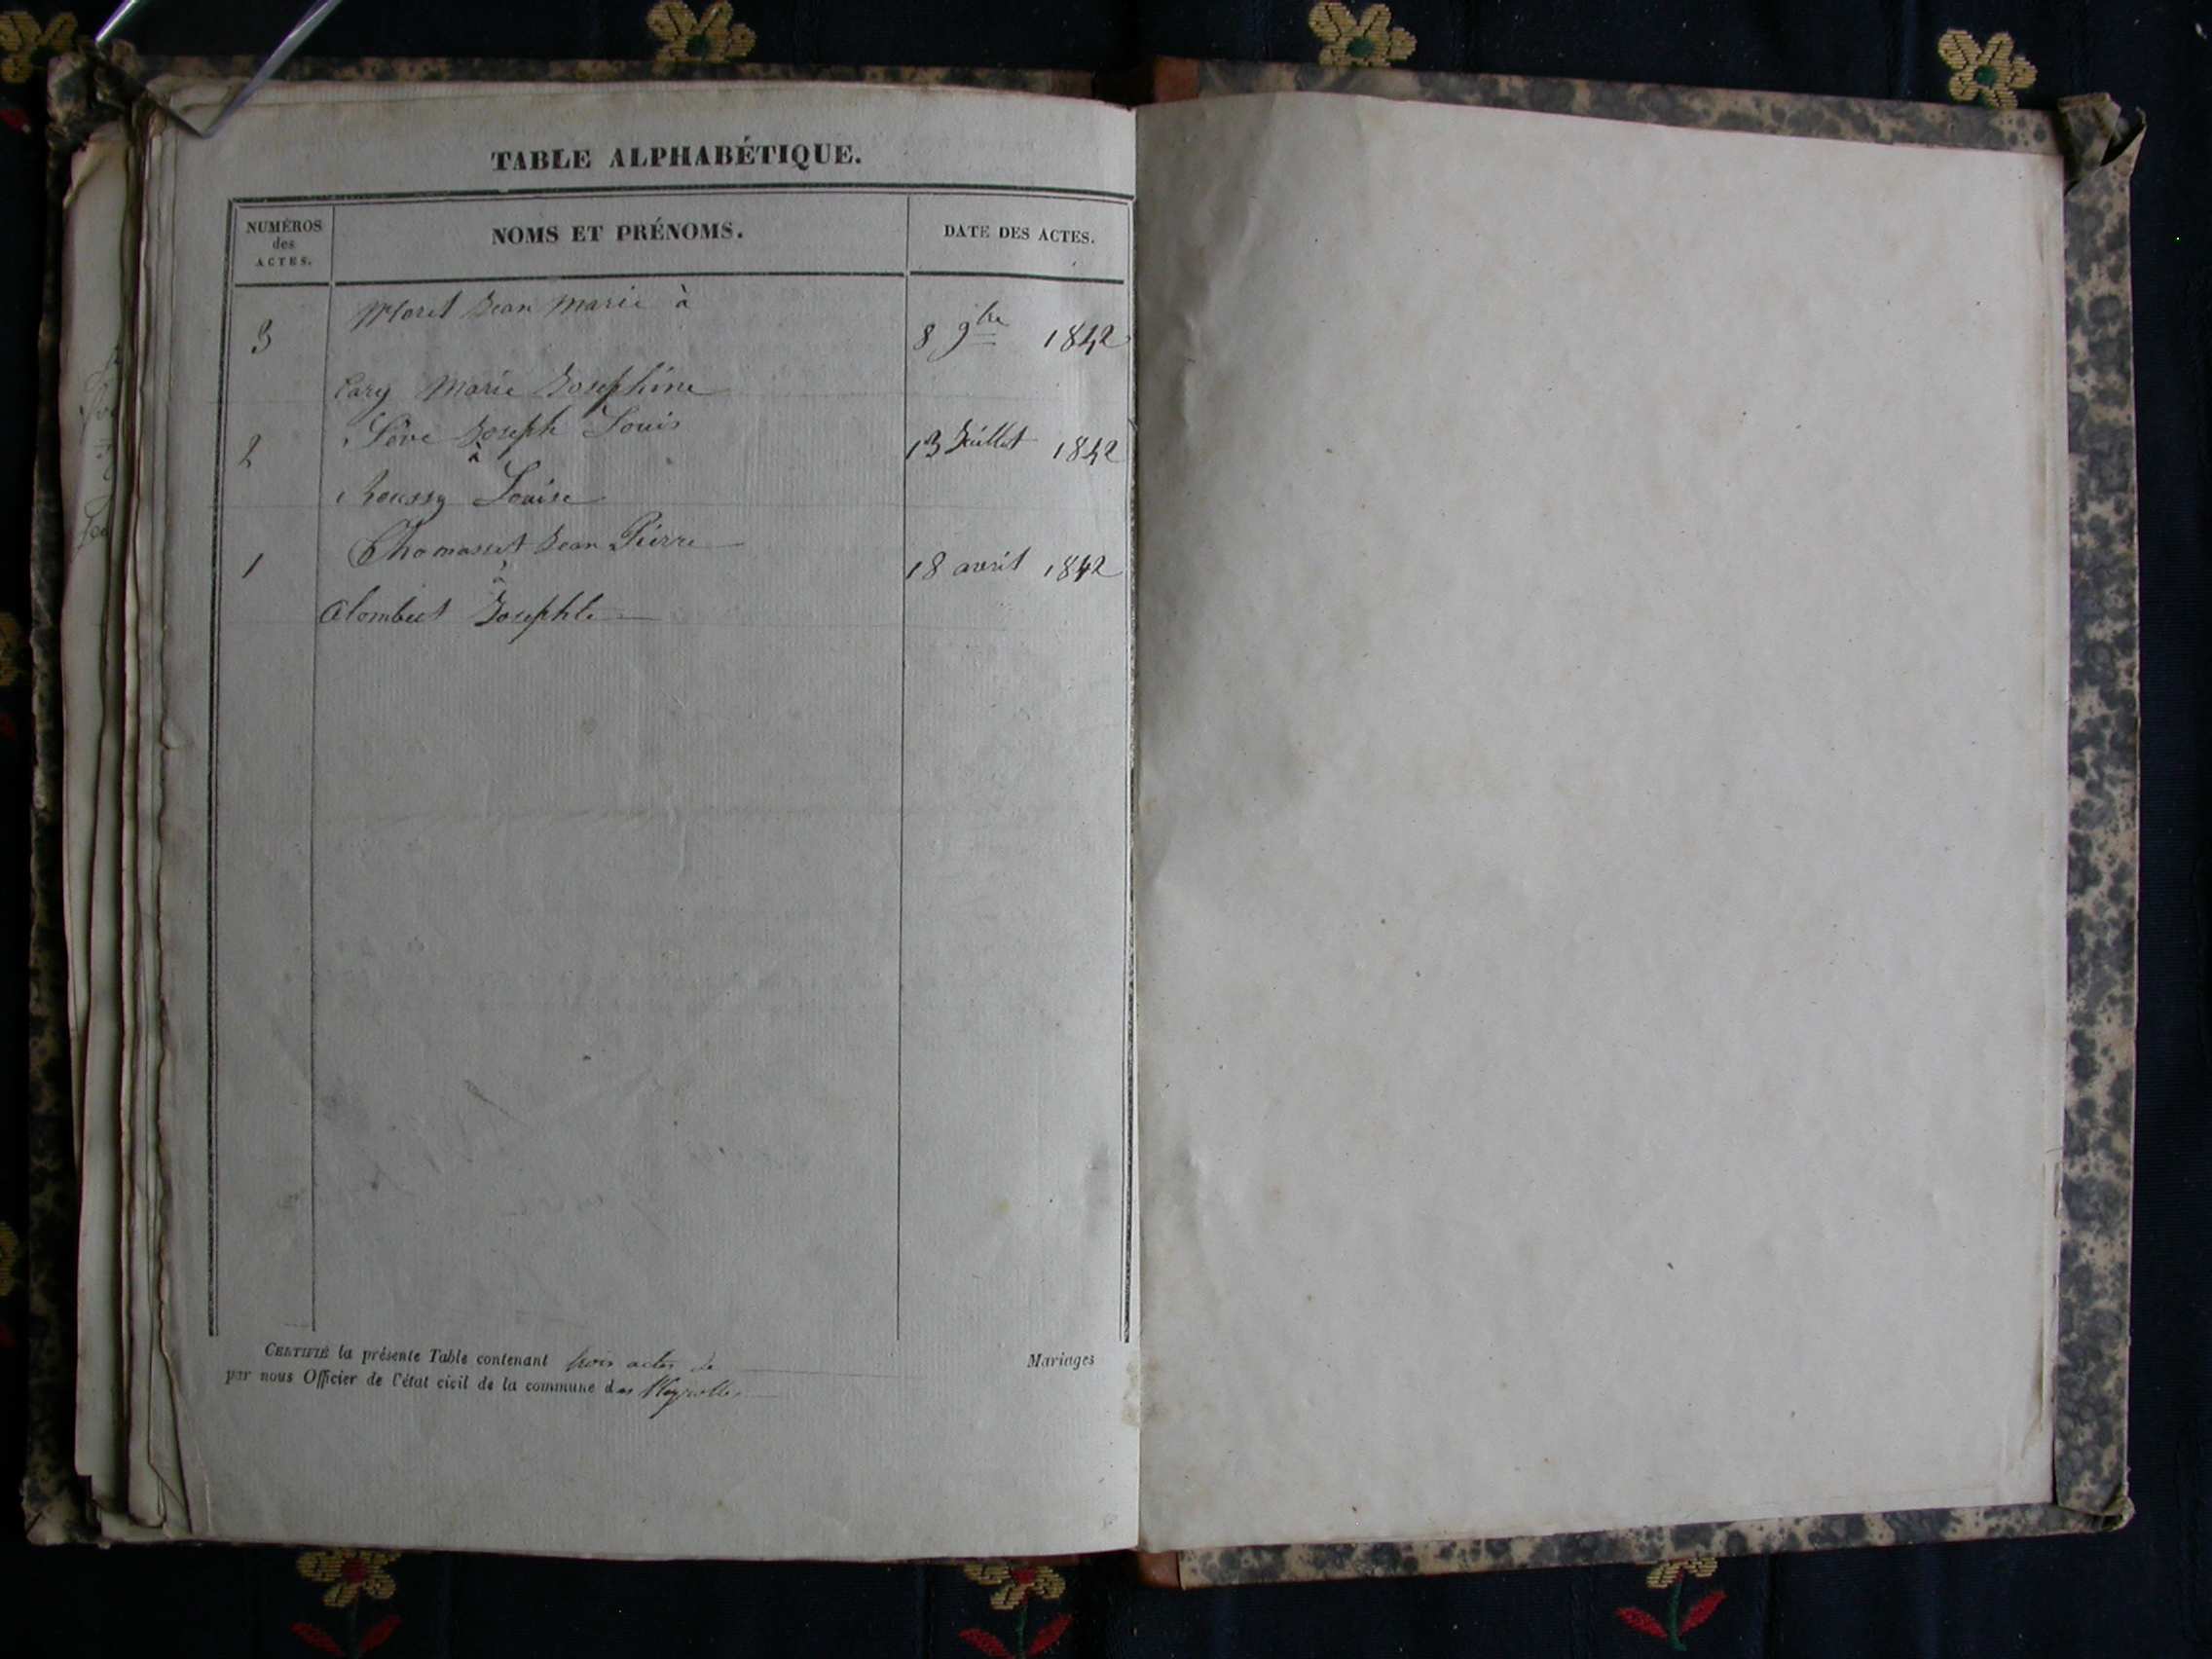 TABLE ALPHABÉTIQUE.
NUMÉROS
des
ACTES.
NOMS ET PRÉNOMS.
DATE DES ACTES.
Moret Jean Marie à
3
8 9bre 1842
Cary Marie Josephine
Sève Joseph Louis
2
à
13 Juillet 1842
Roussy Louise
Thomasset Jean Pierre
1
à
18 avril 1842
Alombert Josephte
CERTIFIÉ la présente Table contenant trois actes de Mariages
par nous Officier de l'état civil de la commune des